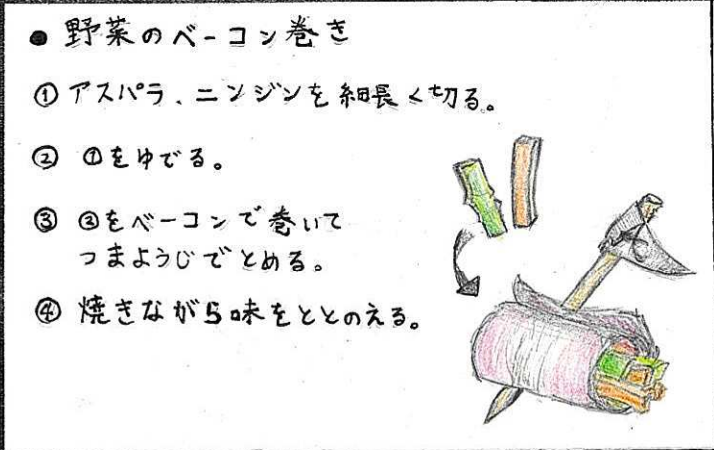 ● 野菜のベーコン巻き
① アスパラ、ニンジンを細長く切る。
② ①をゆでる。
③ ②をベーコンで巻いて
つまようじでとめる。
④ 焼きながら味をととのえる。